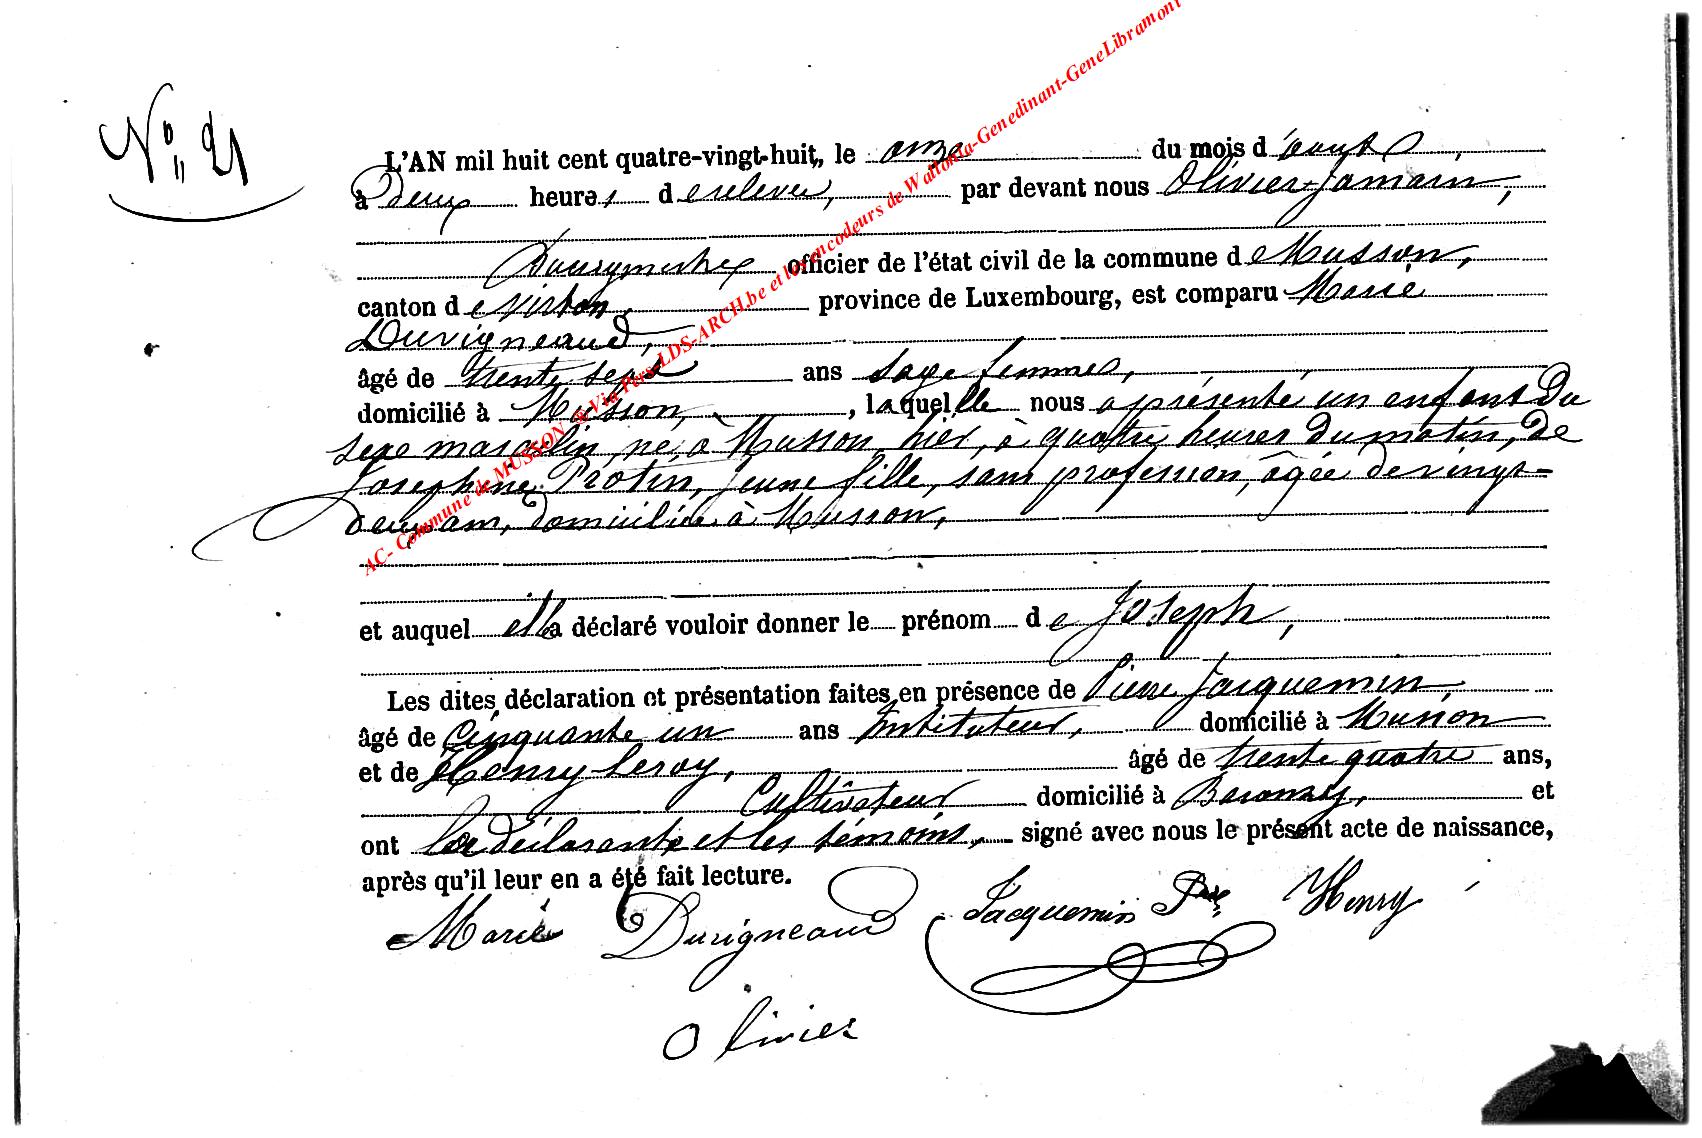 N° 21
L'AN mil huit cent quatre-vingt-huit, le onze du mois d'août,
à deux heures de relevée, par devant nous Olivier Jamain,
Bourgmestre officier de l'état civil de la commune de Musson,
canton de Virton, province de Luxembourg, est comparu Marie
Duvigneaud,
âgé de trente sept ans sage femme,
domicilié à Musson, , laquelle nous a présenté un enfant du
sexe masculin, né, à Musson, hier, à quatre heures du matin, de
Joséphine Protin, jeune fille, sans profession, âgée de vingt-
deux ans, domiciliée à Musson,
et auquel elle a déclaré vouloir donner le prénom de Joseph,
Les dites déclaration et présentation faites en présence de Pierre Jacquemin,
âgé de cinquante un ans Instituteur, domicilié à Musson
et de Henry Leroy, âgé de trente quatre ans,
Cultivateur domicilié à Baranzy, et
ont la déclarante et les témoins, signé avec nous le présent acte de naissance,
après qu'il leur en a été fait lecture.
Marie Duvigneaud Jacquemin Pre Henry
Olivier
AC- Commune de MUSSON & Via Pers-LDS-ARCH.be et les encodeurs de Wallonia-Genedinant-GeneLibramont